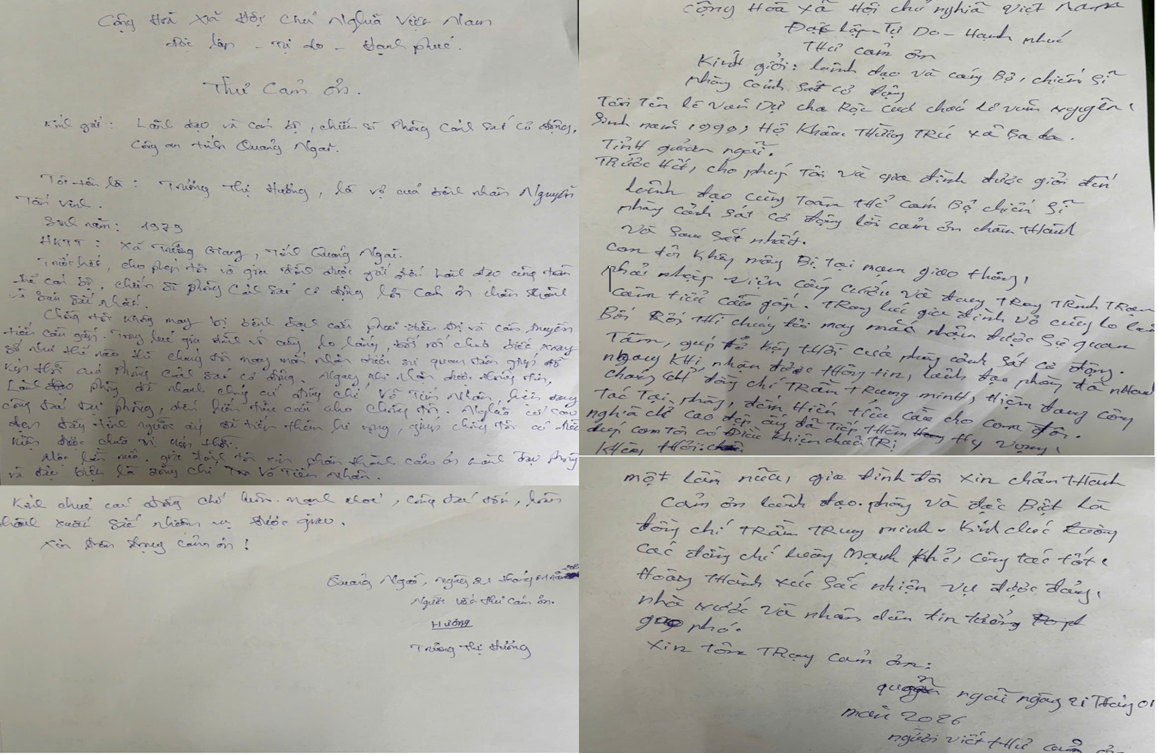 Cộng Hoà Xã Hội Chủ Nghĩa Việt Nam
độc lập - Tự do - Hạnh phúc.
Thư Cảm ơn.
Kính gửi: Lãnh đạo và cán bộ, chiến sĩ Phòng Cảnh sát cơ động,
Công an tỉnh Quảng Ngãi.
Tôi tên là: Trương Thị Hường, là vợ của bệnh nhân Nguyễn
Tấn Vinh.
Sinh năm: 1979
HKTT: Xã Trường Giang, tỉnh Quảng Ngãi.
Trước hết, cho phép tôi và gia đình được gửi đến Lãnh đạo cùng toàn
thể cán bộ, chiến sĩ phòng Cảnh sát cơ động lời cảm ơn chân thành
và sâu sắc nhất.
Chồng tôi không may bị bệnh phải điều trị và cần truyền
tiểu cầu gấp. Trong lúc gia đình vô cùng lo lắng, bối rối chưa biết xoay
sở như thế nào thì chúng tôi may mắn nhận được sự quan tâm giúp đỡ
kịp thời của Phòng Cảnh sát cơ động. Ngay khi nhận được thông tin,
Lãnh đạo phòng đã nhanh chóng cử đồng chí Võ Tiến Nhân, hiện đang
công tác tại phòng, đến hiến tiểu cầu cho chồng tôi. Nghĩa cử cao
đẹp đầy tình người ấy đã tiếp thêm hy vọng, giúp chồng tôi có điều
kiện được chữa trị kịp thời.
Một lần nữa, gia đình tôi xin chân thành cảm ơn Lãnh đạo phòng
và đặc biệt là đồng chí Võ Tiến Nhân.
Kính chúc các đồng chí luôn mạnh khoẻ, công tác tốt, hoàn
thành xuất sắc nhiệm vụ được giao.
Xin trân trọng cảm ơn!
Quảng Ngãi, ngày 21 tháng
Người viết thư cảm ơn.
Hường
Trương Thị Hường
Cộng Hòa Xã Hội chủ nghĩa Việt Nam
Độc Lập - Tự Do - Hạnh phúc
Thư cảm ơn
Kính gửi: Lãnh đạo và cán Bộ, chiến sĩ
phòng cảnh sát cơ động
Tôi Tên lê Văn Dự cha ruột của cháu Lê văn Nguyên,
Sinh năm 1999, Hộ Khẩu Thường Trú xã Ba
Tỉnh quảng ngãi.
Trước Hết, cho phép Tôi và gia đình được gửi đến
Lãnh đạo cùng Toàn Thể cán Bộ chiến sĩ
phòng cảnh sát cơ động lời cảm ơn chân Thành
Và sâu sắc nhất.
Con tôi Không may Bị Tai nạn giao thông,
phải nhập viện cấp cứu và đang Trong Trình Trạng
cần tiểu cầu gấp. Trong lúc gia đình vô cùng lo lắng
Bối Rối Thì chúng tôi may mắn nhận được sự quan
Tâm, giúp đỡ kịp Thời của phòng cảnh sát cơ động.
ngay Khi nhận được Thông tin, Lãnh đạo phòng đã nhanh
chóng cử đồng chí Trần Trung minh, Hiện đang công
Tác Tại phòng, đến Hiến tiểu cầu cho con tôi.
nghĩa cử cao đẹp ấy đã Tiếp Thêm Hy vọng,
giúp con Tôi có Điều Kiện chữa Trị
Kịp Thời.
một lần nữa, gia đình tôi xin chân Thành
Cảm ơn lãnh đạo phòng và đặc Biệt là
đồng chí Trần Trung minh. Kính chúc
Các đồng chí luông mạnh khỏe, công tác tốt.
Hoàng Thành xuất sắc nhiệm vụ được đảng,
nhà nước và nhân dân tin tưởng
phó.
Xin Tôn Trọng cảm ơn.
quảng ngãi ngày 21 Tháng 01
năm 2026
người viết Thư cảm ơn